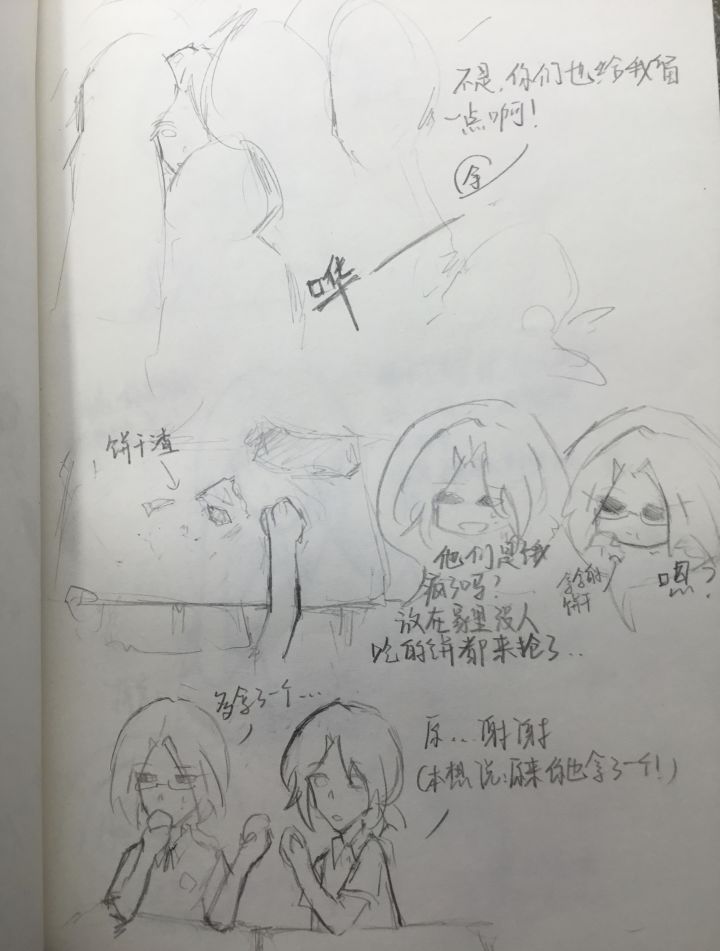 不是,你们也给我留
一点啊!
余
哗
饼干渣
他们是饿
疯了吗?
放在家里没人
吃的饼都来抢了..
拿的
饼干
嗯?
多拿了一个...
原...谢谢
(本想说:原来你也拿了一个!)